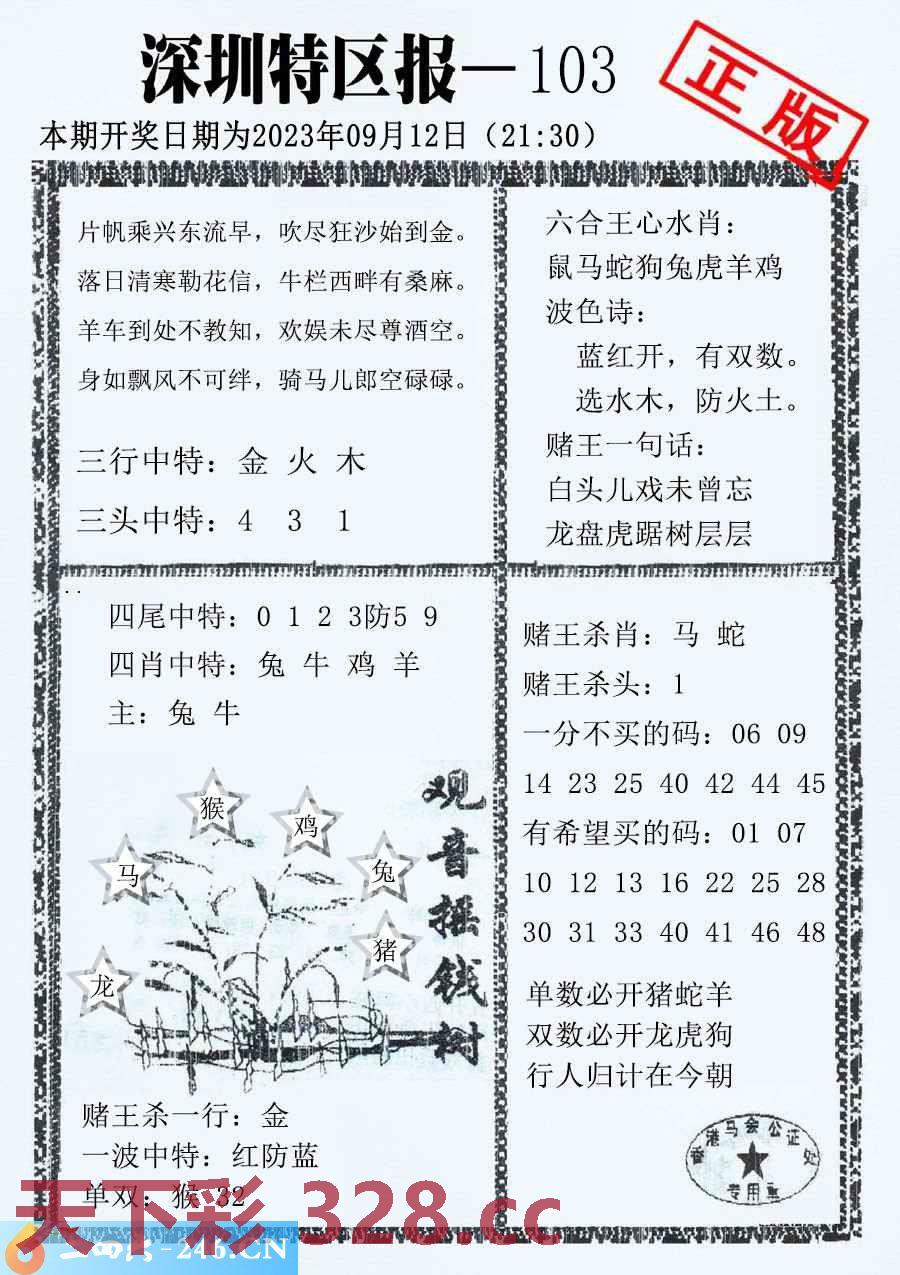 深圳特区报—103
正版
本期开奖日期为2023年09月12日（21:30）
片帆乘兴东流早，吹尽狂沙始到金。
落日清寒勒花信，牛栏西畔有桑麻。
羊车到处不教知，欢娱未尽尊酒空。
身如飘风不可绊，骑马儿郎空碌碌。
三行中特：金 火 木
三头中特：4 3 1
六合王心水肖：
鼠马蛇狗兔虎羊鸡
波色诗：
蓝红开，有双数。
选水木，防火土。
赌王一句话：
白头儿戏未曾忘
龙盘虎踞树层层
四尾中特：0 1 2 3防5 9
四肖中特：兔 牛 鸡 羊
主：兔 牛
猴
鸡
马
兔
猪
龙
观音摇钱树
赌王杀一行：金
一波中特：红防蓝
单双：猴 32
赌王杀肖：马 蛇
赌王杀头：1
一分不买的码：06 09
14 23 25 40 42 44 45
有希望买的码：01 07
10 12 13 16 22 25 28
30 31 33 40 41 46 48
单数必开猪蛇羊
双数必开龙虎狗
行人归计在今朝
香港马会公证处
专用章
天下彩 328.cc
-246.CN